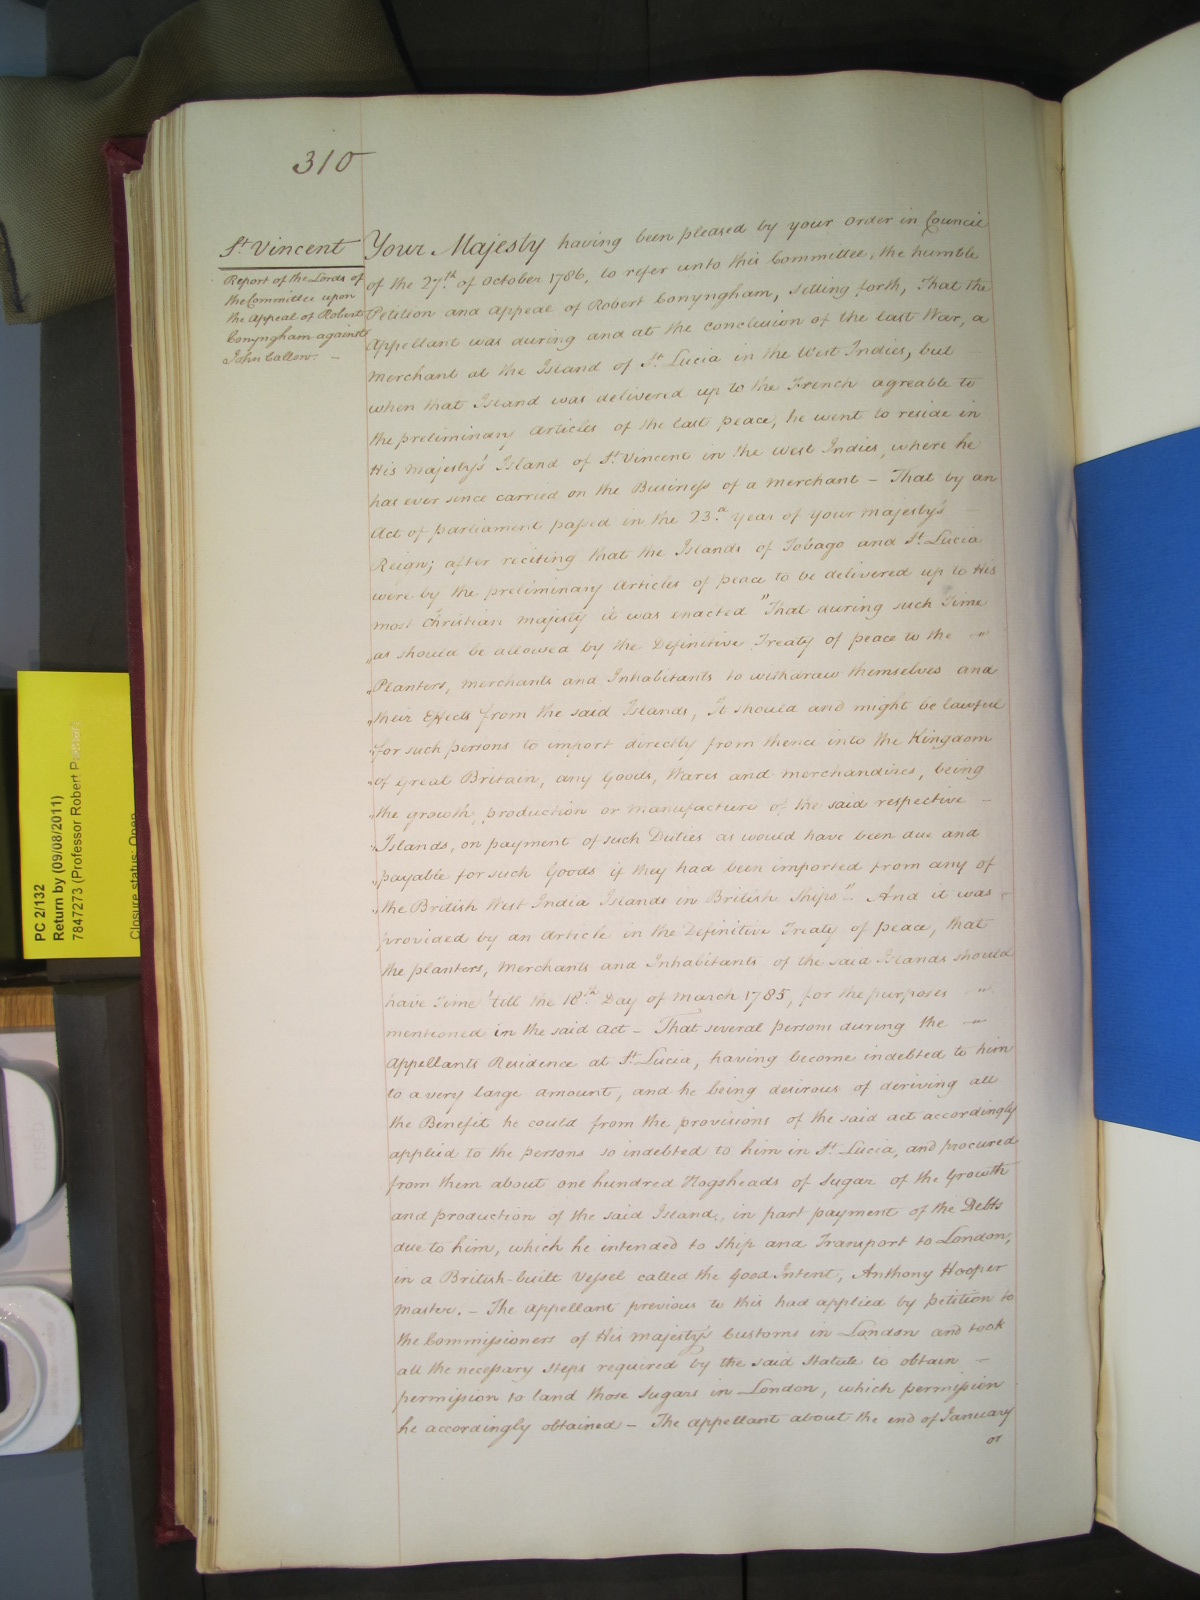 310
St Vincent
Report of the Lords of
the Committee upon
the Appeal of Robert
Conyngham against
John Callow. —
Your Majesty having been pleased by your Order in Council
of the 27th of October 1786, to refer unto this Committee, the humble
Petition and Appeal of Robert Conyngham, setting forth, That the
Appellant was during and at the conclusion of the last War, a
Merchant at the Island of St Lucia in the West Indies, but
when that Island was delivered up to the French agreable to
the preliminary Articles of the last peace, he went to reside in
His Majesty's Island of St Vincent in the West Indies, where he
has ever since carried on the Business of a Merchant — That by an
Act of parliament passed in the 23d Year of your Majesty's
Reign; after reciting that the Islands of Tobago and St Lucia
were by the preliminary Articles of peace to be delivered up to His
most Christian Majesty it was enacted "That during such Time
"as should be allowed by the Definitive Treaty of peace to the
"Planters, Merchants and Inhabitants to withdraw themselves and
"their Effects from the said Islands, It should and might be lawful
"for such persons to import directly from thence into the Kingdom
"of Great Britain, any Goods, Wares and Merchandizes, being
"the growth, production or manufacture of the said respective —
"Islands, on payment of such Duties as would have been due and
"payable for such Goods if they had been imported from any of
"the British West India Islands in British Ships". And it was
provided by an Article in the Definitive Treaty of peace, that
the planters, Merchants and Inhabitants of the said Islands should
have Time 'till the 18th Day of March 1785, for the purposes
mentioned in the said Act — That several persons during the
Appellants Residence at St Lucia, having become indebted to him
to a very large amount, and he being desirous of deriving all
the Benefit he could from the provisions of the said Act accordingly
applied to the persons so indebted to him in St Lucia, and procured
from them about one hundred Hogsheads of Sugar of the Growth
and production of the said Island, in part payment of the Debts
due to him, which he intended to Ship and Transport to London,
in a British-built Vessel called the Good Intent, Anthony Hooper
Master. — The Appellant previous to this had applied by petition to
the Commissioners of His Majesty's Customs in London and took
all the necessary Steps required by the said Statute to obtain —
permission to land those Sugars in London, which permission
he accordingly obtained — The Appellant about the end of January
or
PC 2/132
Return by (09/08/2011)
7847273 (Professor Robert
Closure status: Open